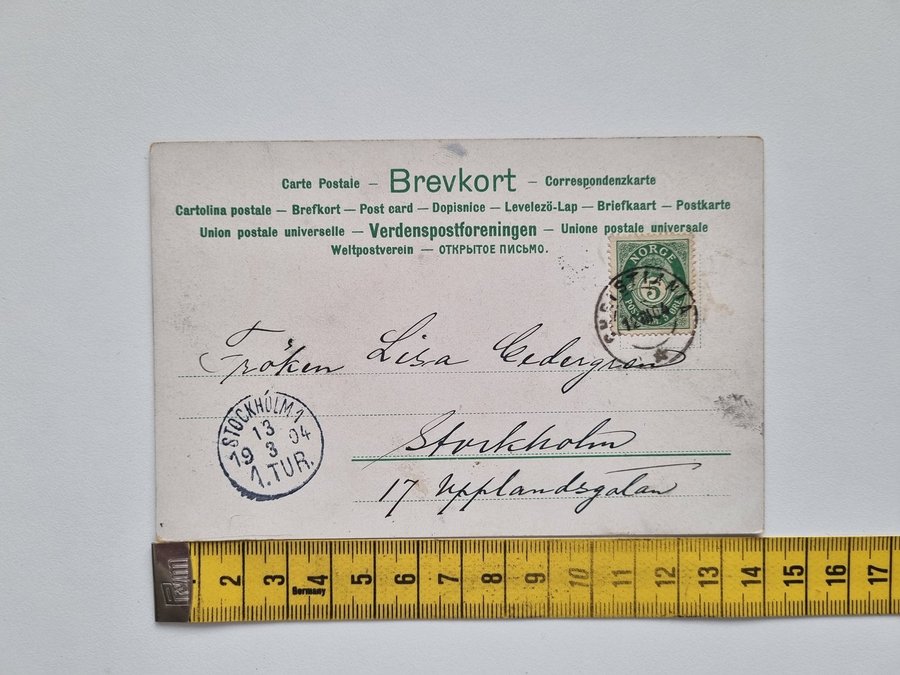 Carte Postale – Brevkort – Correspondenzkarte
Cartolina postale – Brefkort – Post card – Dopisnice – Levelezö-Lap – Briefkaart – Postkarte
Union postale universelle – Verdenspostforeningen – Unione postale universale
Weltpostverein – ОТКРЫТОЕ ПИСЬМО.
NORGE
5
CHRISTIANIA
Fröken Lisa Cedergren
STOCKHOLM 1
13
19 3 04
1.TUR.
Stockholm
17 Upplandsgatan
2 3 4 5 6 7 8 9 10 11 12 13 14 15 16 17
Germany